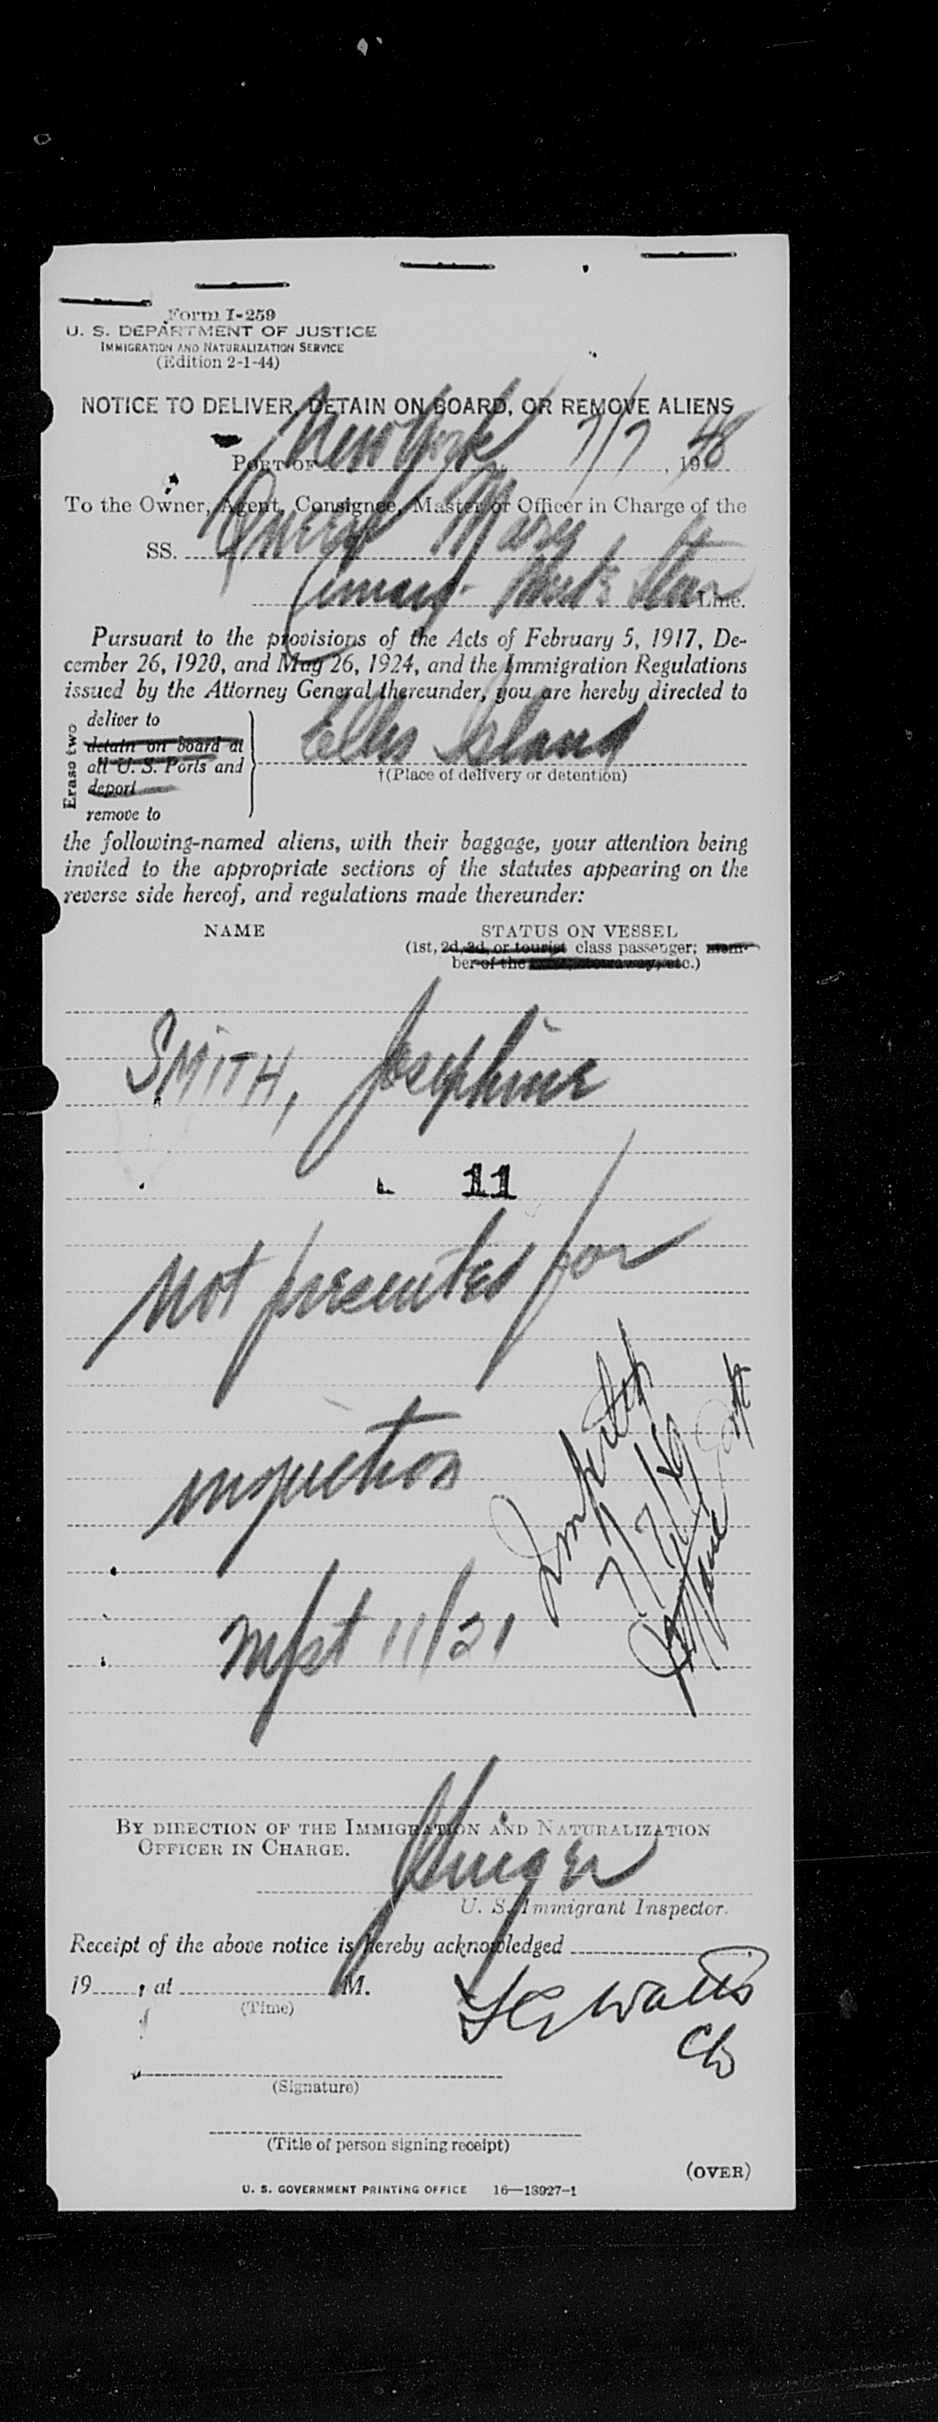 Form I-259
U. S. DEPARTMENT OF JUSTICE
IMMIGRATION AND NATURALIZATION SERVICE
(Edition 2-1-44)
NOTICE TO DELIVER, DETAIN ON BOARD, OR REMOVE ALIENS
PORT OF New York 7/7, 1948
To the Owner, Agent, Consignee, Master or Officer in Charge of the
SS. Queen Mary
Cunard White Star Line.
Pursuant to the provisions of the Acts of February 5, 1917, De-
cember 26, 1920, and May 26, 1924, and the Immigration Regulations
issued by the Attorney General thereunder, you are hereby directed to
Erase two
deliver to
detain on board at
all U. S. Ports and
deport
remove to
Ellis Island
†(Place of delivery or detention)
the following-named aliens, with their baggage, your attention being
invited to the appropriate sections of the statutes appearing on the
reverse side hereof, and regulations made thereunder:
NAME STATUS ON VESSEL
(1st, 2d, 3d, or tourist class passenger; mem-
ber of the stowaway, etc.)
SMITH, Josephine
11
Not presented for
inspection
Mfst 11/21
7/7/48
BY DIRECTION OF THE IMMIGRATION AND NATURALIZATION
OFFICER IN CHARGE.
U. S. Immigrant Inspector.
Receipt of the above notice is hereby acknowledged
19 , at M.
(Time)
Watts
(Signature)
(Title of person signing receipt)
(OVER)
U. S. GOVERNMENT PRINTING OFFICE 16—13927-1